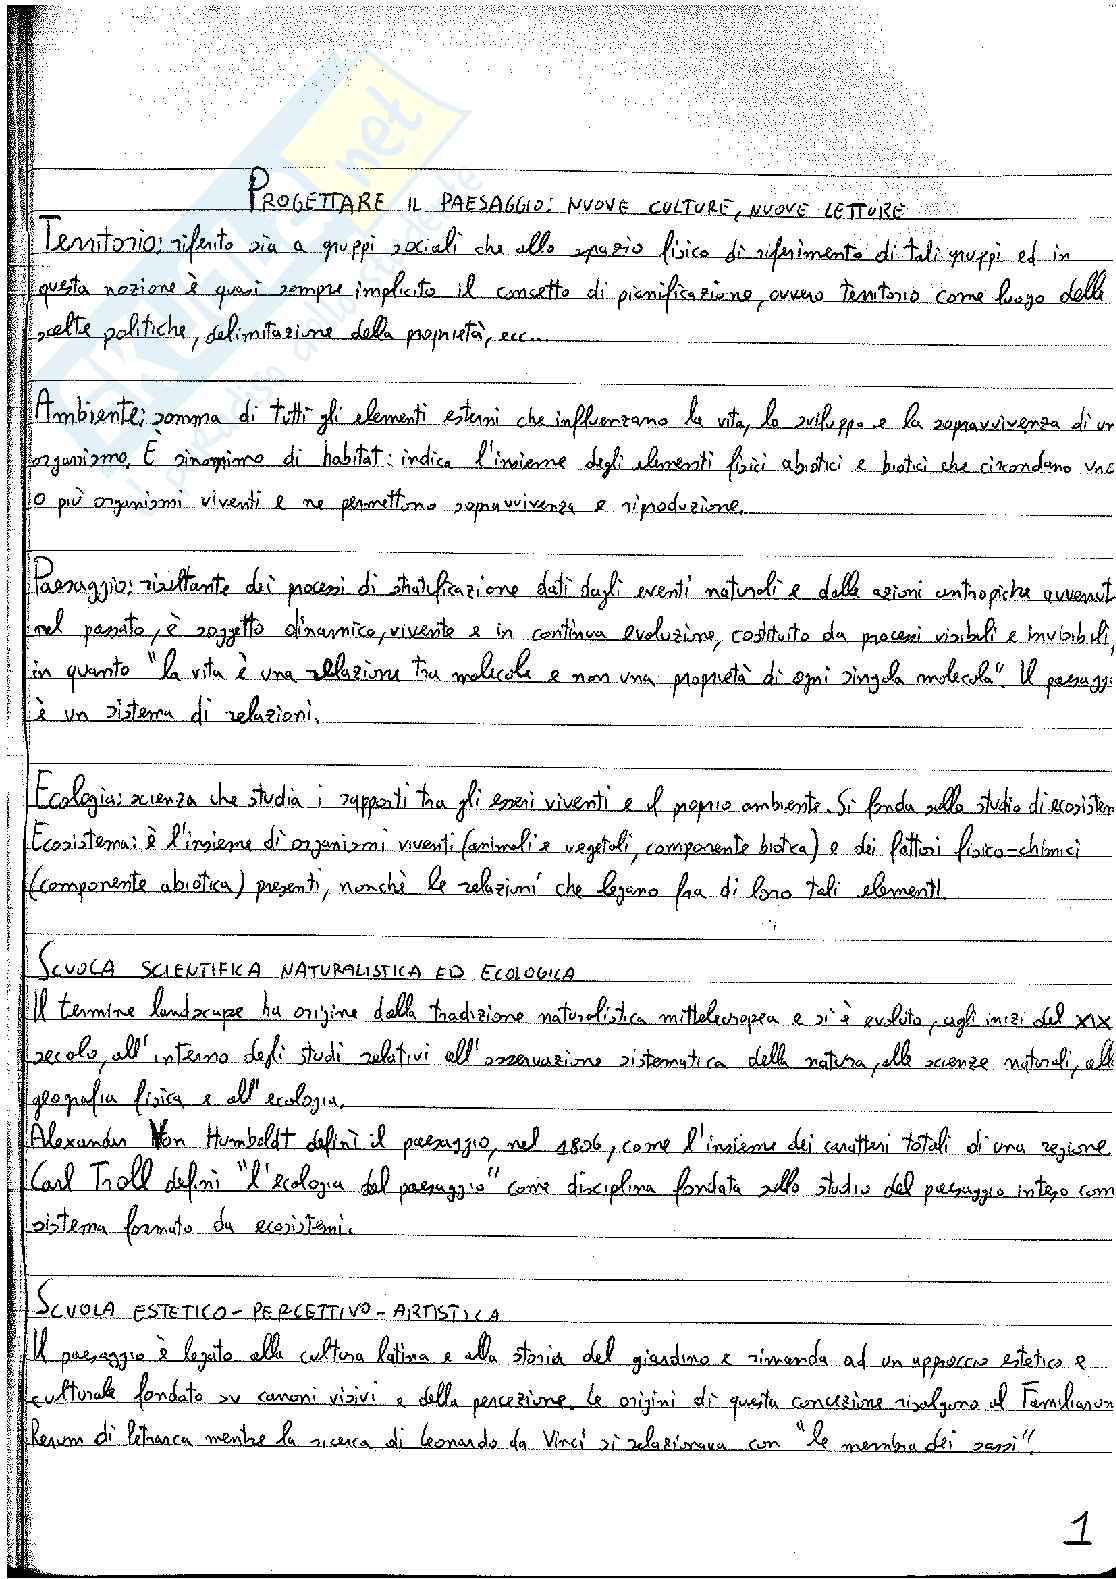 PROGETTARE IL PAESAGGIO: NUOVE CULTURE, NUOVE LETTURE
Territorio: riferito sia a gruppi sociali che allo spazio fisico di riferimento di tali gruppi ed in
questa nozione è quasi sempre implicito il concetto di pianificazione, ovvero territorio come luogo delle
scelte politiche, delimitazione della proprietà, ecc...
Ambiente: somma di tutti gli elementi esterni che influenzano la vita, lo sviluppo e la sopravvivenza di un
organismo. È sinonimo di habitat: indica l'insieme degli elementi fisici abiotici e biotici che circondano uno
o più organismi viventi e ne permettono sopravvivenza e riproduzione.
Paesaggio: risultante dei processi di stratificazione dati dagli eventi naturali e dalle azioni antropiche avvenut
nel passato, è soggetto dinamico, vivente e in continua evoluzione, costituito da processi visibili e invisibili,
in quanto "la vita è una relazione tra molecole e non una proprietà di ogni singola molecola". Il paesaggi
è un sistema di relazioni.
Ecologia: scienza che studia i rapporti tra gli esseri viventi e il proprio ambiente. Si fonda sullo studio di ecosistem
Ecosistema: è l'insieme di organismi viventi (animali e vegetali, componente biotica) e dei fattori fisico-chimici
(componente abiotica) presenti, nonchè le relazioni che legano fra di loro tali elementi.
SCUOLA SCIENTIFICA NATURALISTICA ED ECOLOGICA
Il termine landscape ha origine dalla tradizione naturalistica mitteleuropea e si è evoluto, agli inizi del XIX
secolo, all'interno degli studi relativi all'osservazione sistematica della natura, alle scienze naturali, alla
geografia fisica e all'ecologia.
Alexander Von Humboldt definì il paesaggio, nel 1806, come l'insieme dei caratteri totali di una regione
Carl Troll definì "l'ecologia del paesaggio" come disciplina fondata sullo studio del paesaggio inteso com
sistema formato da ecosistemi.
SCUOLA ESTETICO-PERCETTIVO-ARTISTICA
Il paesaggio è legato alla cultura latina e alla storia del giardino e rimanda ad un approccio estetico e
culturale fondato su canoni visivi e della percezione. Le origini di questa concezione risalgono al Familiarum
Rerum di Petrarca mentre la ricerca di Leonardo da Vinci si relazionava con "le membra dei sassi".
1
skuola.net